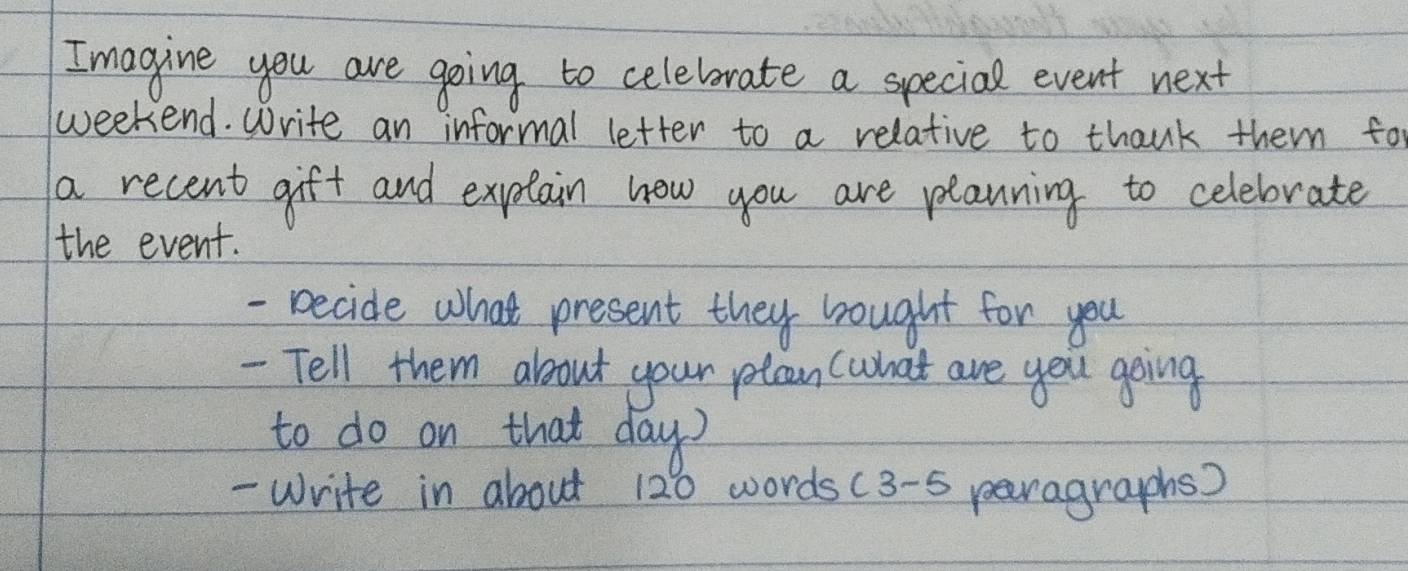 Imagine you are going to celebrate a special event next
weekend. Write an informal letter to a relative to thank them for
a recent gift and explain how you are planning to celebrate
the event.
- Decide what present they bought for you
- Tell them about your plan (what are you going
to do on that day)
- Write in about 120 words (3-5 paragraphs)